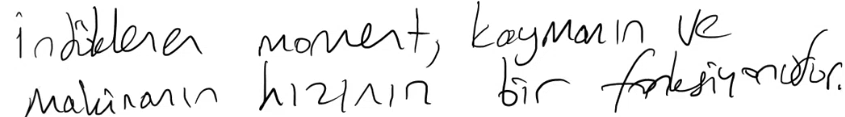 indüklenen moment, kaymanın ve
makinanın hızının bir fonksiyonudur.